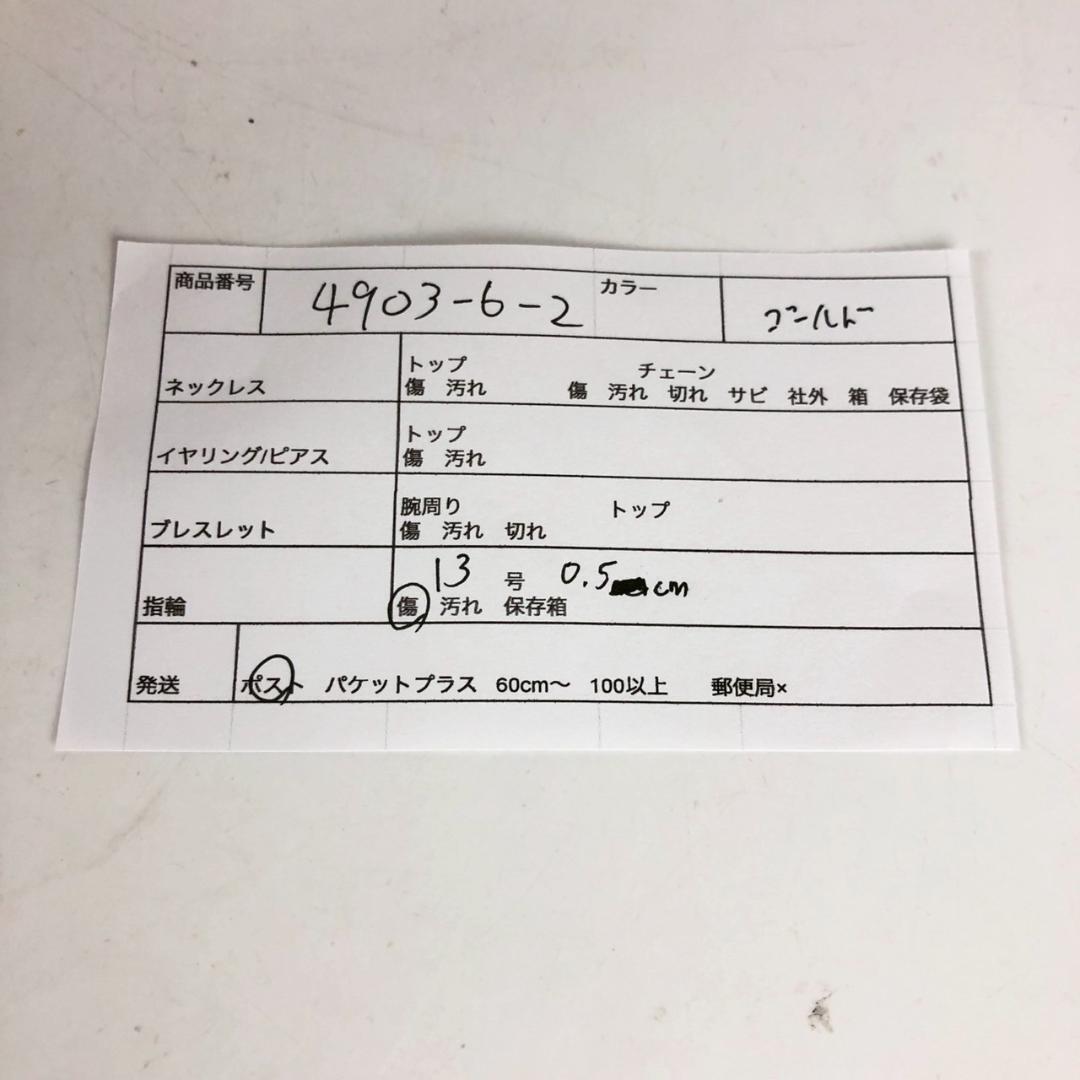 商品番号 4903-6-2 カラー ゴールド
トップ チェーン
ネックレス 傷 汚れ 傷 汚れ 切れ サビ 社外 箱 保存袋
トップ
イヤリング/ピアス 傷 汚れ
腕周り トップ
ブレスレット 傷 汚れ 切れ
13 号 0.5 cm
指輪 傷 汚れ 保存箱
発送 ポスト パケットプラス 60cm〜 100以上 郵便局×